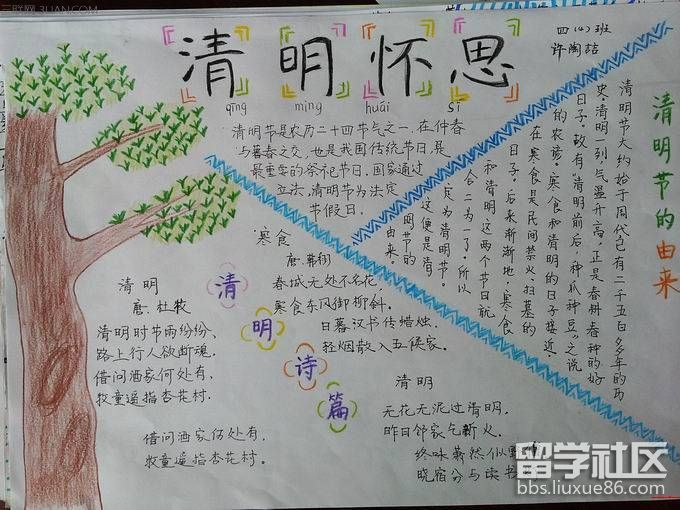 清明怀思
qīng míng huái sī
四(4)班
清明节是农历二十四节气之一,在仲春
与暮春之交,也是我国传统节日,是
最重要的祭祀节日,国家通过
立法,清明节为法定
节假日。
清明节的由来
清明节大约始于周代已有二千五百多年的历
史。清明一到气温升高,正是春耕春种的好
日子,故有"清明前后,种瓜种豆"之说
的农谚。寒食和清明的日子接近,
在寒食是民间禁火、扫墓的
日子,后来渐渐地,寒食
和清明这两个节日就
合二为一了,所以
定为清明节。
这便是清
明节的
由来。
清明诗篇
寒食
唐·韩翃
春城无处不飞花,
寒食东风御柳斜。
日暮汉书传蜡烛,
轻烟散入五侯家。
清明
唐·杜牧
清明时节雨纷纷,
路上行人欲断魂。
借问酒家何处有,
牧童遥指杏花村。
借问酒家何处有,
牧童遥指杏花村。
清明
无花无泥过清明,
昨日邻家气新火。
晓窗分与读书
留学社区
bbs.liuxue86.com